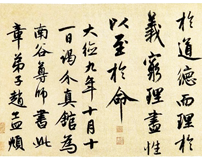 於道德而理於
義窮理盡性
以至於命
大德九年十月十
一日謁真館為
南谷尊師書此
章弟子趙孟頫